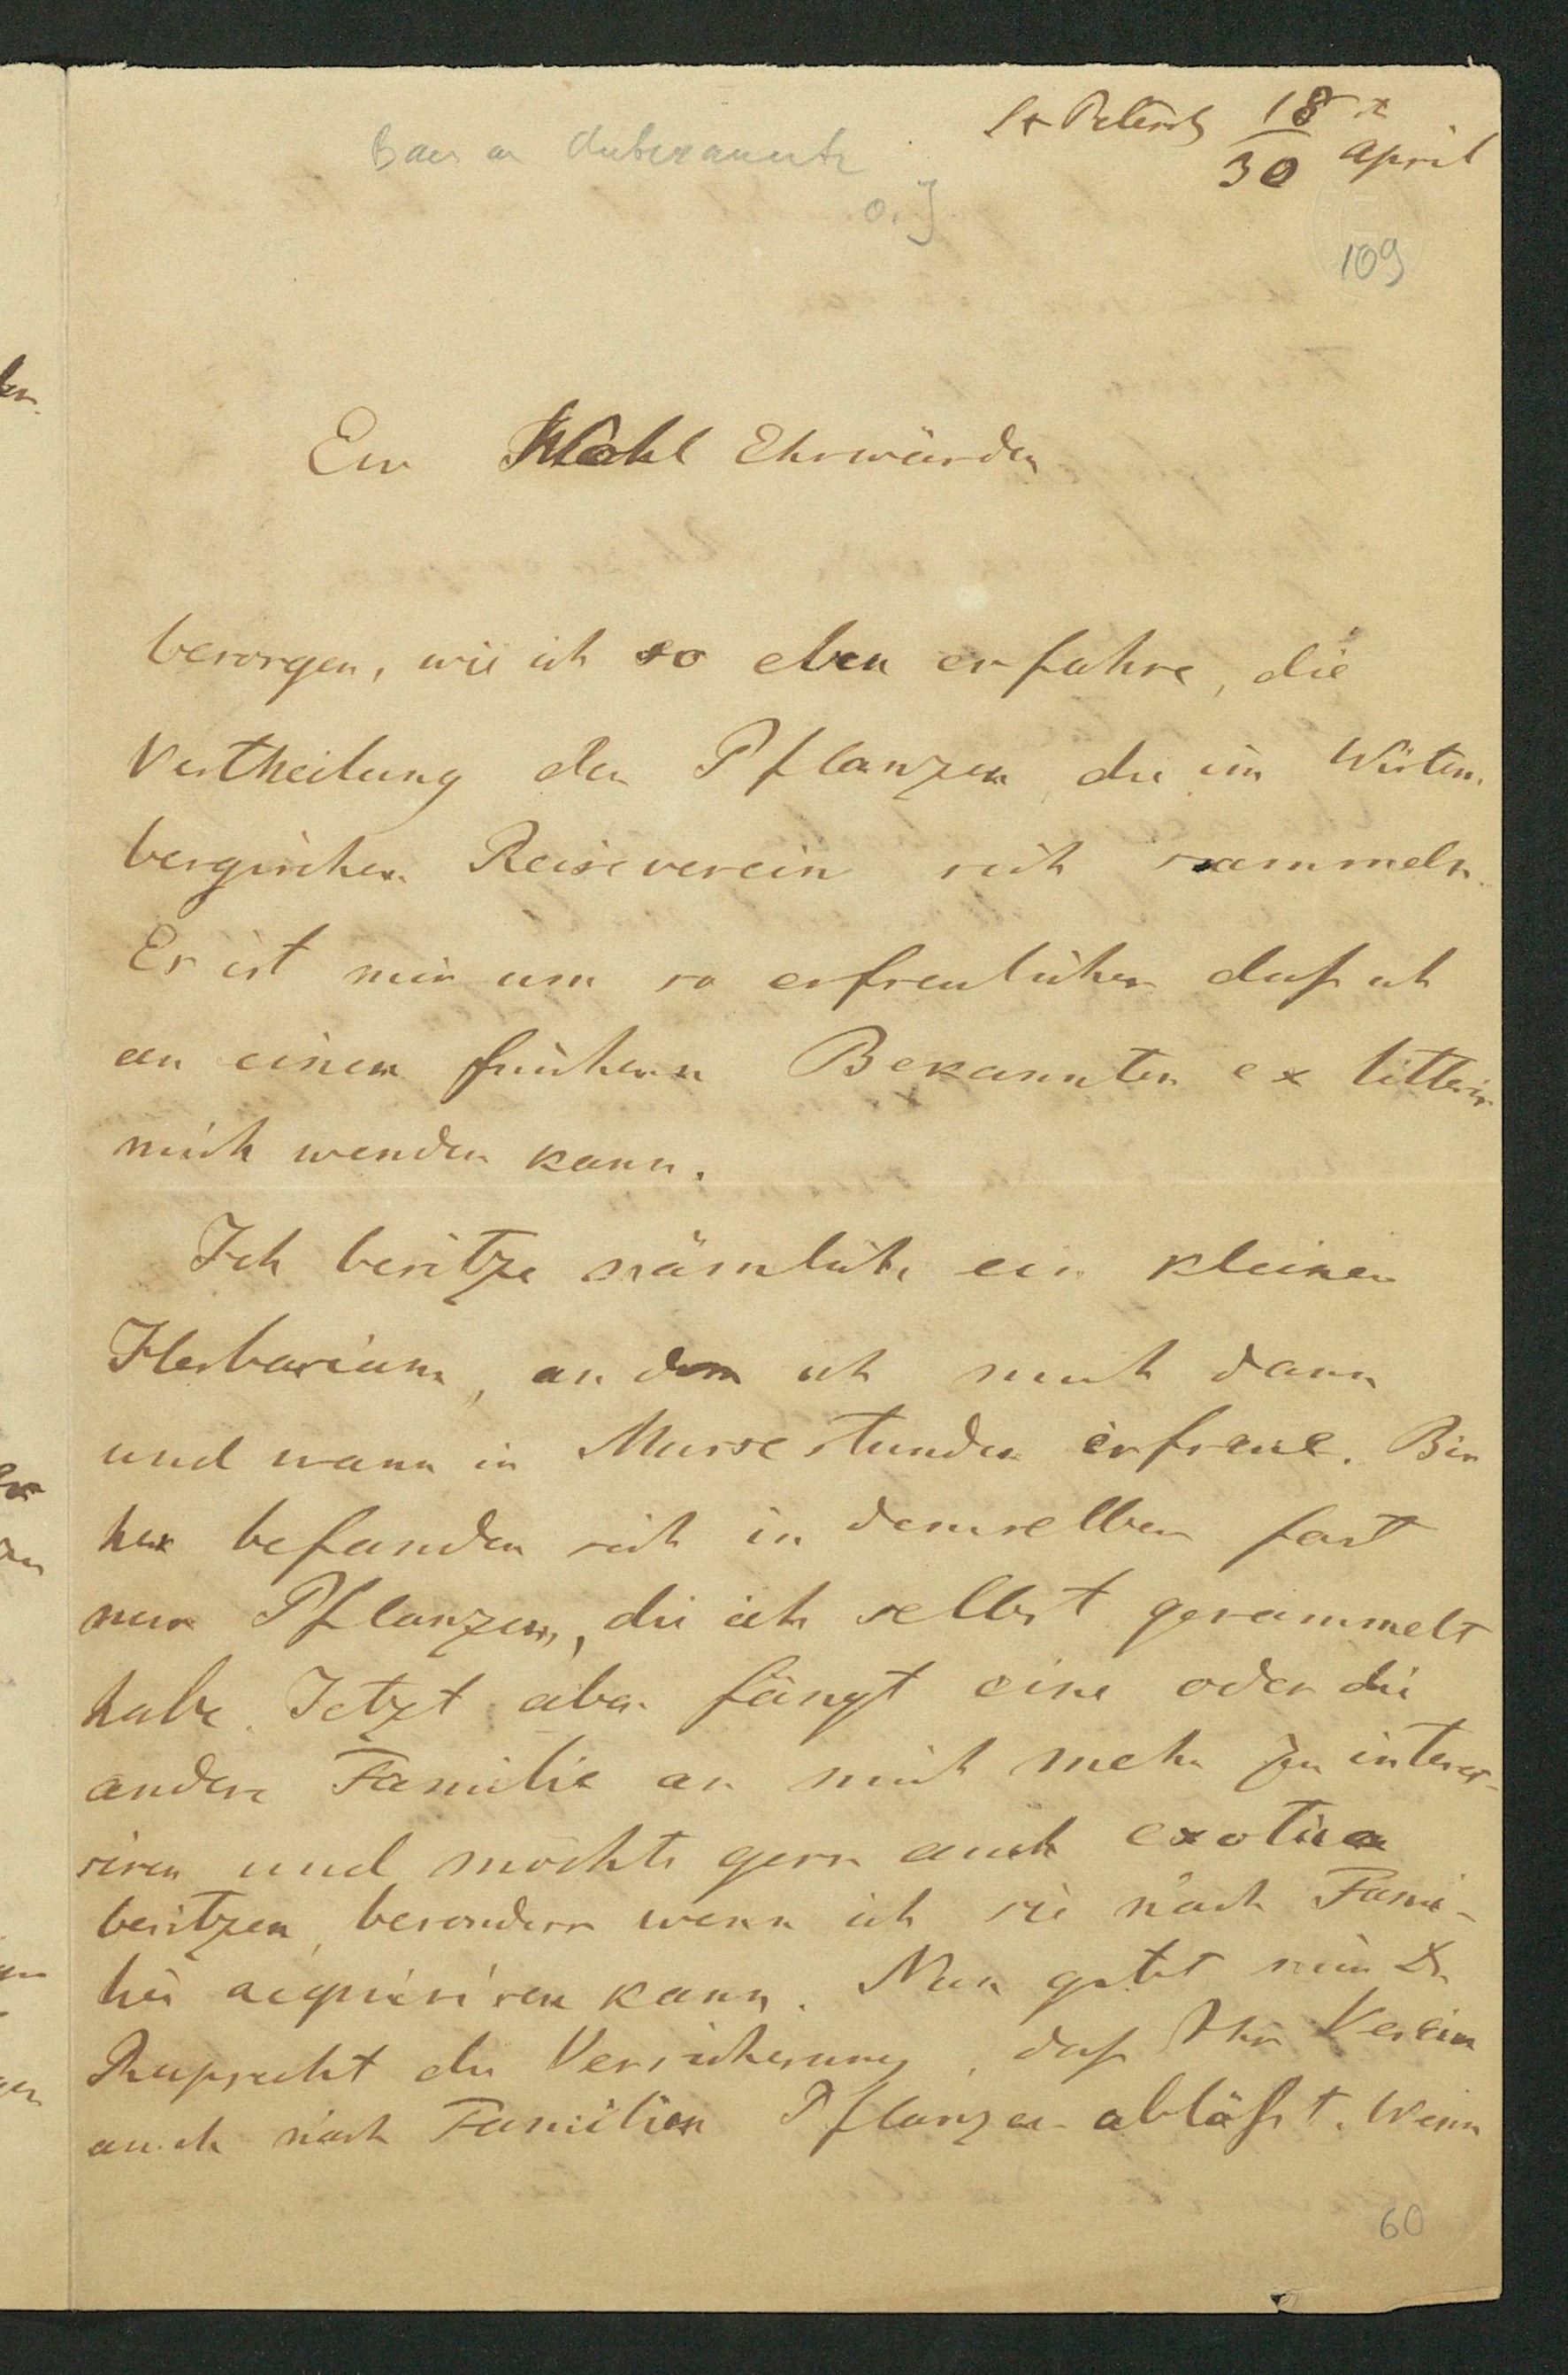 Baer an Unbekannte
o. J.
St Petersb 18t/30 April
109
Ew Wohl Ehrwürden
besorgen, wie ich so eben erfahre, die
Vertheilung der Pflanzen, die im Würtem-
bergischen Reiseverein sich sammeln.
Es ist mir um so erfreulicher daß ich
an einen frühern Bekannten ex litteris
mich wenden kann.
Ich besitze nämlich ein kleines
Herbarium, an dem ich mich dann
und wann in Mussestunden erfreue. Bis
her befanden sich in demselben fast
nur Pflanzen, die ich selbst gesammelt
habe. Jetzt aber fängt eine oder die
andere Familie an mich mehr zu interes-
siren und möchte gern auch exotica
besitzen, besonders wenn ich sie nach Fami-
lie acquisiren kann. Nun giebt mir Dr
Ruprecht die Versicherung, daß Ihr Verein
auch nach Familien Pflanzen abläßt. Wenn
60